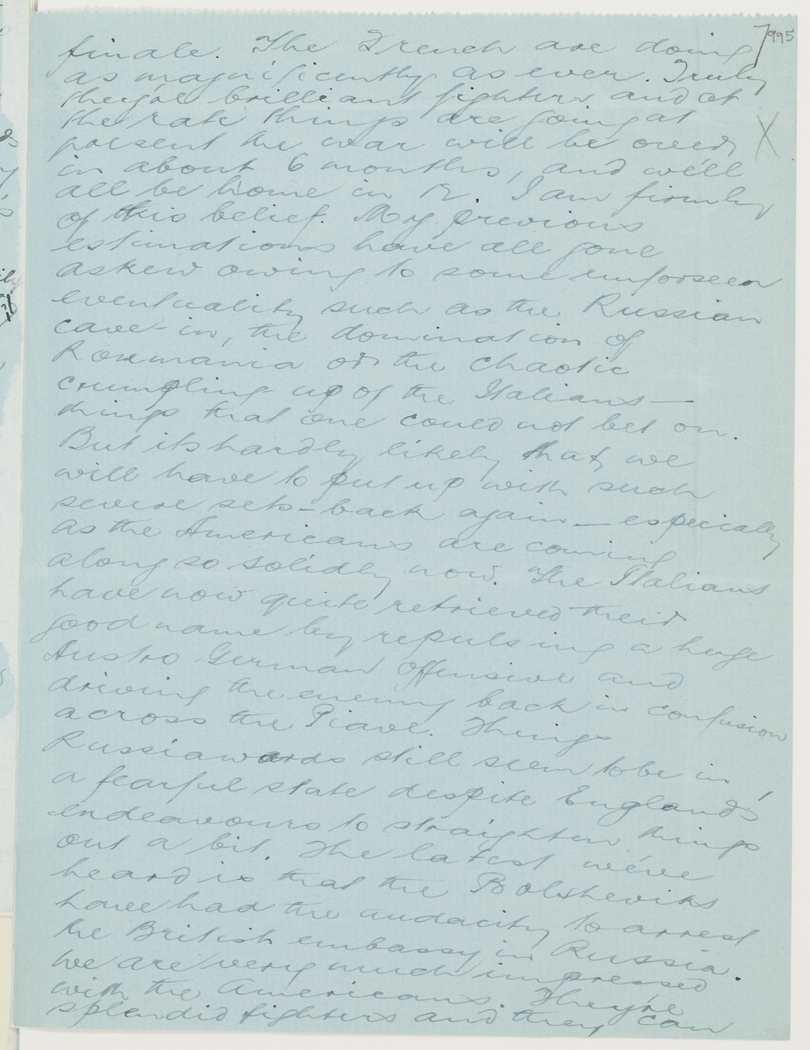 7 995
finale. The French are doing
as magnificently as ever. Truly
they're brilliant fighters and at
the rate things are going at
present the war will be over
in about 6 months, and we'll
all be home in 12. I am firmly
of this belief. My previous
estimations have all gone
askew owing to some unforseen
eventuality such as the Russian
cave-in, the domination of
Roumania or the chaotic
crumpling up of the Italians —
things that one could not bet on.
But its hardly likely that we
will have to put up with such
severe sets-back again — especially
as the Americans are coming
along so solidly now. The Italians
have now quite retrieved their
good name by repulsing a huge
Austro German offensive and
driving the enemy back in confusion
across the Piave. Things
Russiawards still seem to be in
a fearful state despite England's
endeavours to straighten things
out a bit. The latest we've
heard is that the Bolsheviks
have had the audacity to arrest
the British embassy in Russia.
We are very much impressed
with the Americans. They're
splendid fighters and they can